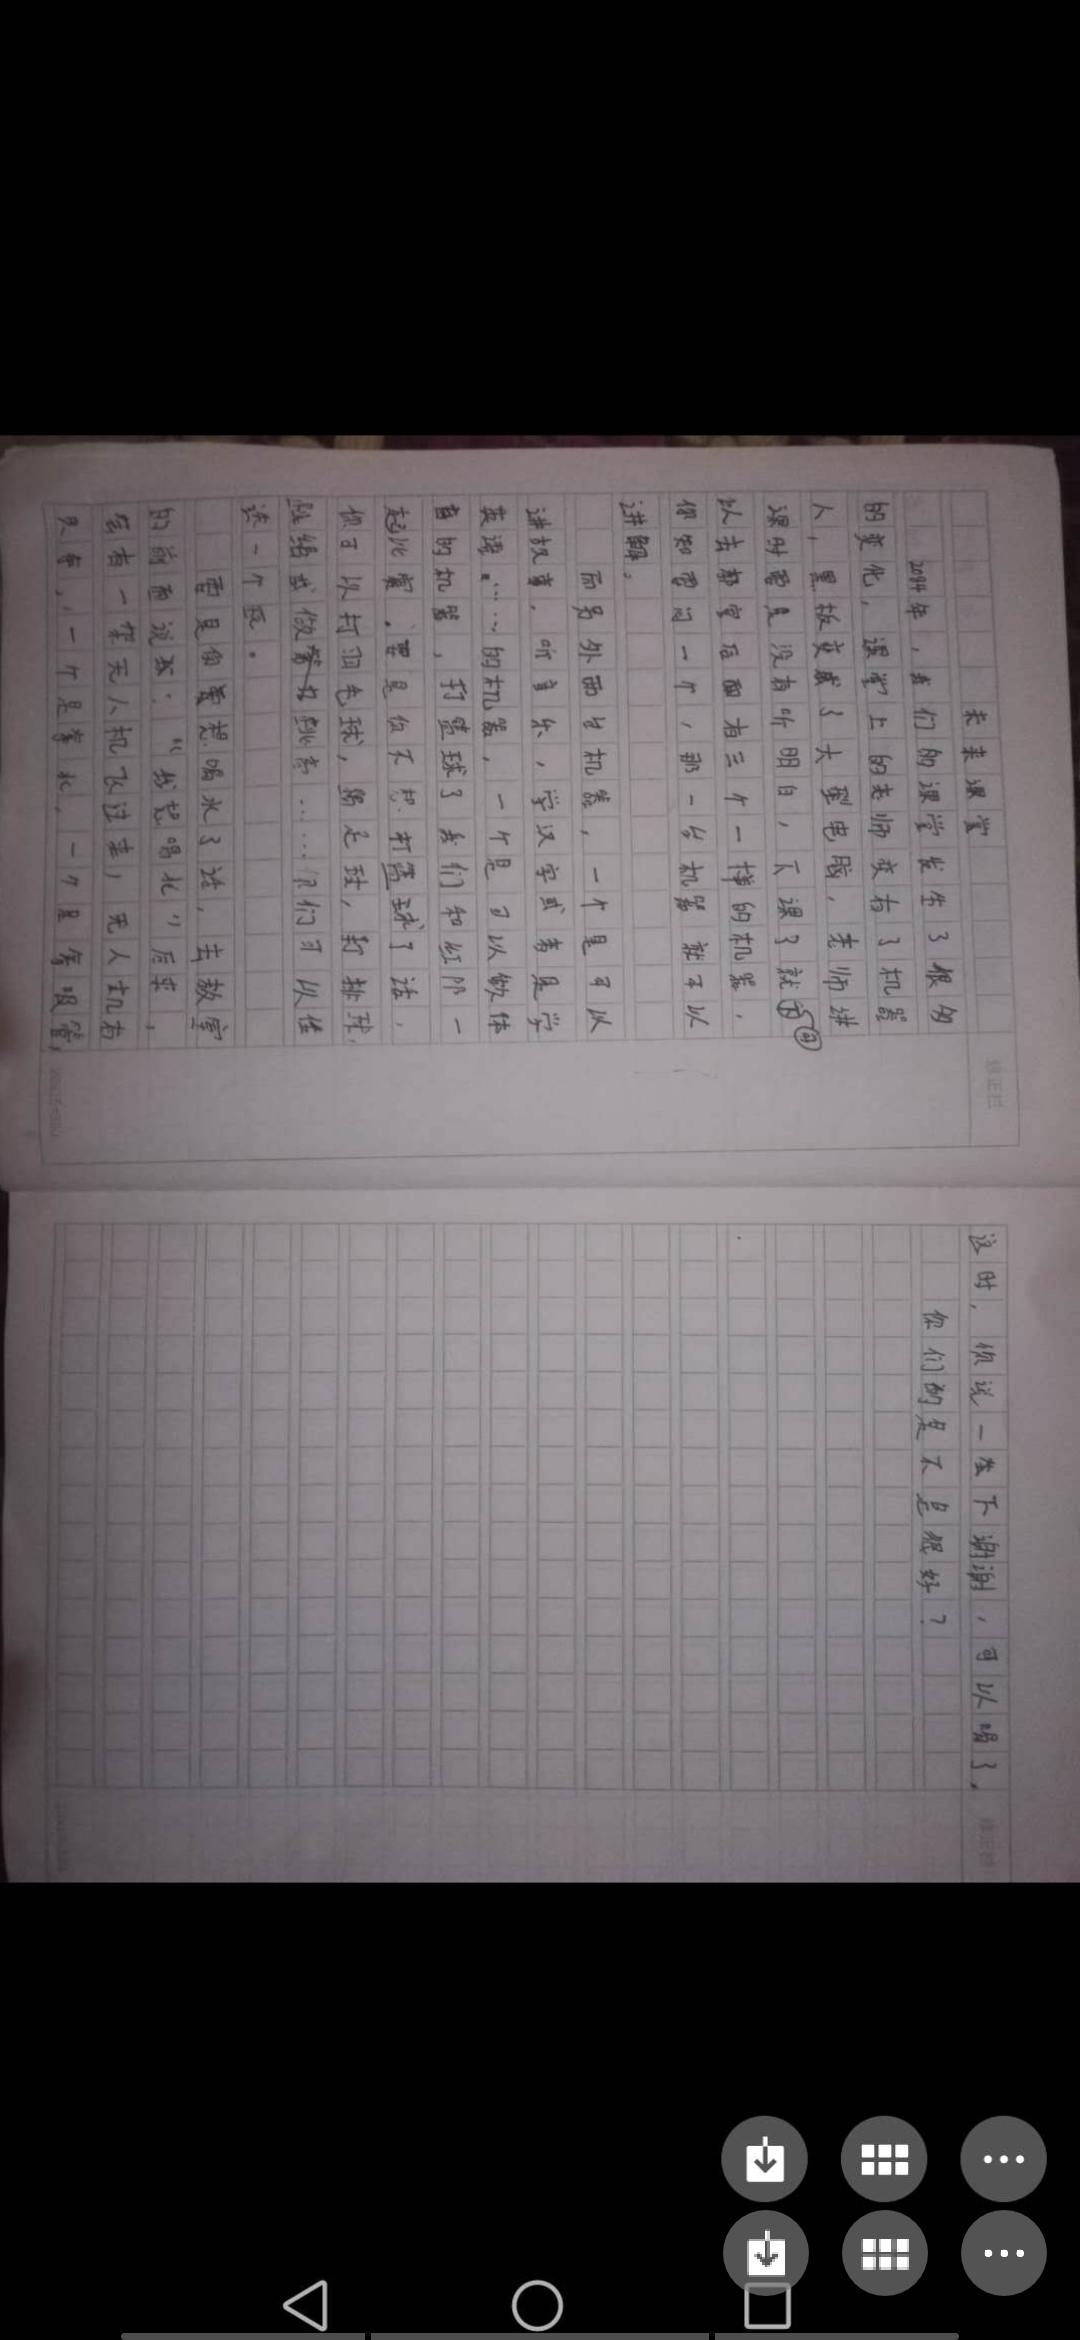 未来课堂
2094年，我们的课堂发生了很多
的变化，课堂上的老师变有了机器
人，黑板变成了大型电脑，老师讲
课时要是没有听明白，下课了就可
以去教室后面有三个一样的机器，
你知要问一个，那一台机器就可以
讲解。
而另外两台机器，一个是可以
讲故事，听音乐，学汉字或者是学
英语……的机器，一个是可以做体
育的机器，打篮球了我们和红队一
起比赛，要是你不想打篮球了话，
你可以打羽毛球，踢足球，打排球，
跳绳或做跳高……你们可以任
选一个玩。
要是你要想喝水了话，去教室
的前面说：“我想喝水”后来，
会有一架无人机飞过来，无人机有
只有，一个是拿水，一个是拿吸管，
这时，你说一下谢谢，可以喝了。
你们的是不是很好？
修正栏
修正栏